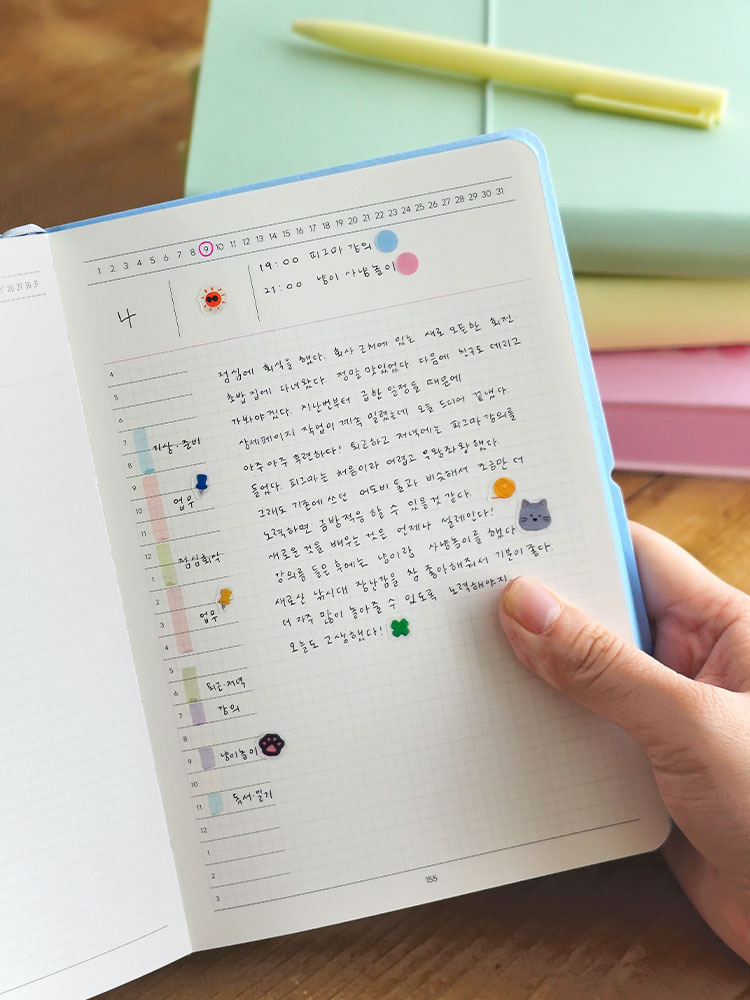 27 28 29 30 31
1 2 3 4 5 6 7 8 9 10 11 12 13 14 15 16 17 18 19 20 21 22 23 24 25 26 27 28 29 30 31
19:00 피그마 강의
21:00 냥이 사냥놀이
점심에 회식을 했다. 회사 근처에 있는 새로 오픈한 회전
초밥집에 다녀왔다. 정말 맛있었다 다음에 친구도 데리고
가봐야겠다. 지난번부터 급한 일정들 때문에
상세페이지 작업이 계속 밀렸는데 오늘 드디어 끝냈다.
아주아주 후련하다! 퇴근하고 저녁에는 피그마 강의를
들었다. 피그마는 처음이라 어렵고 우왕좌왕했다.
그래도 기존에 쓰던 어도비 툴과 비슷해서 조금만 더
노력하면 금방적응 할 수 있을것 같다.
새로운 것을 배우는 것은 언제나 설레인다!
강의를 들은 후에는 냥이랑 사냥놀이를 했다
새로산 낚시대 장난감을 참 좋아해줘서 기분이 좋다.
더 자주 많이 놀아줄 수 있도록 노력해야지
오늘도 고생했다!
4
5
6
7 기상·준비
8
9
10 업무
11
12 점심회식
1
2
3 업무
4
5
6 퇴근·저녁
7 강의
8
9 냥이놀이
10
11 독서·일기
12
1
2
3
155